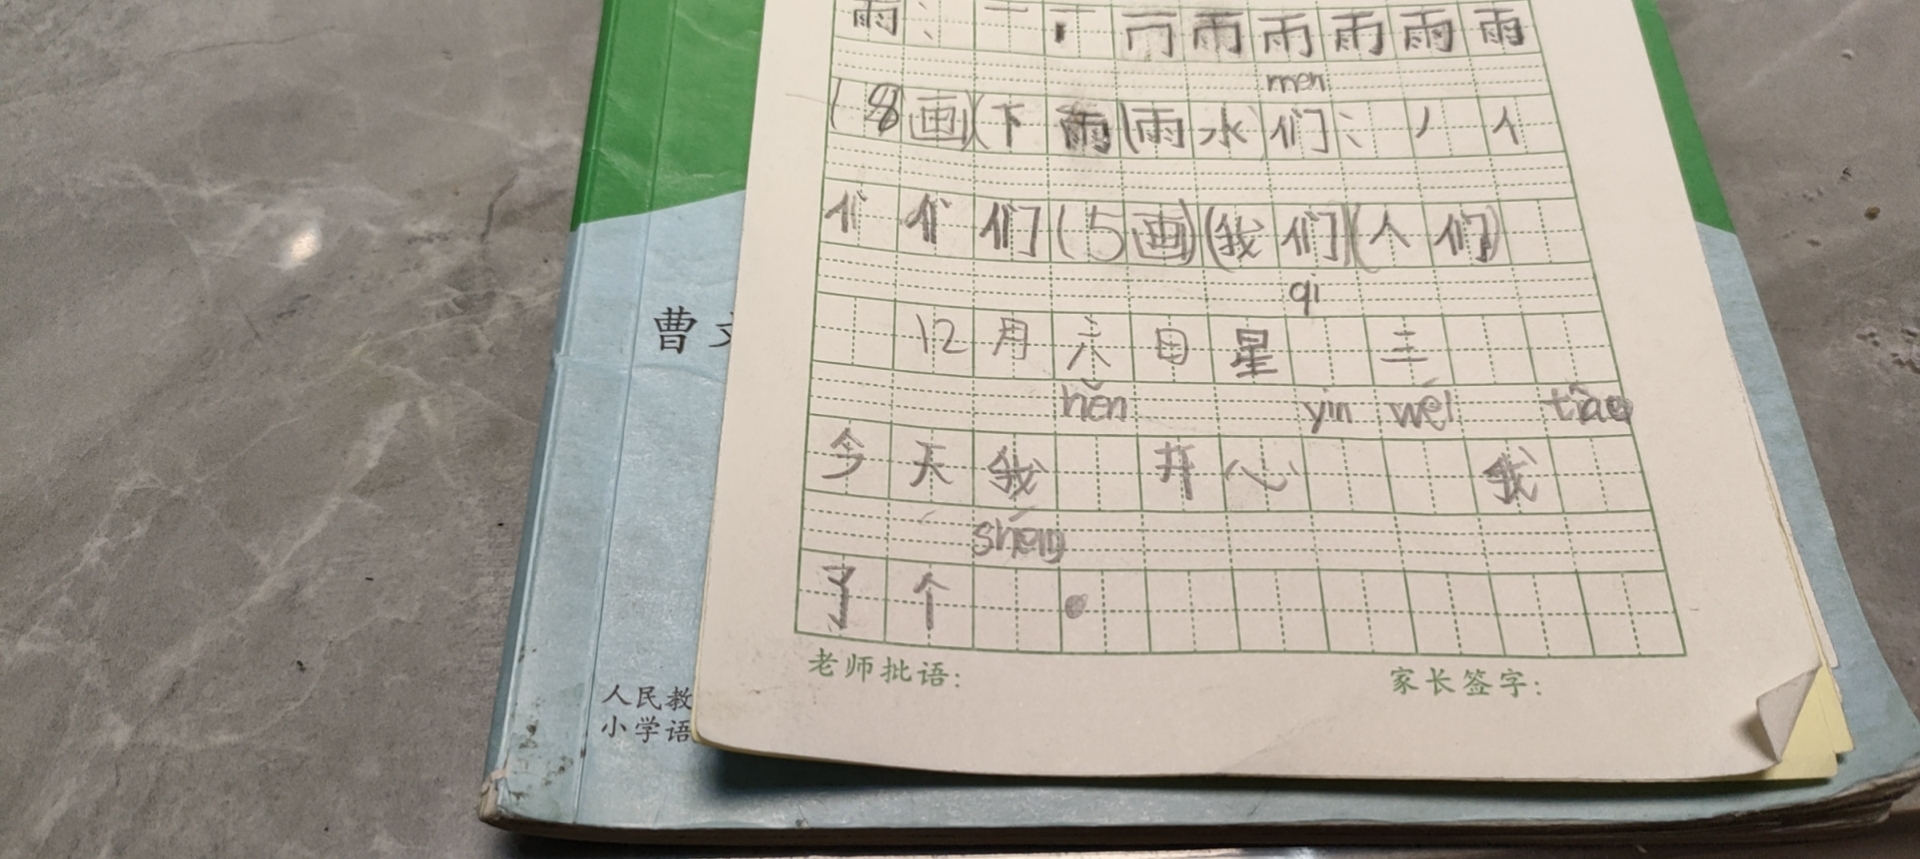 雨：一 丅 冂 雨 雨 雨 雨 雨
men
(8画)(下雨(雨水)们：丿 亻
亻 亻 们(5画)(我们)(人们)
qi
12月六日星 三
hěn yīn wéi tiào
今天我 开心 我
shéng
了个 。
老师批语： 家长签字：
曹文
人民教
小学语